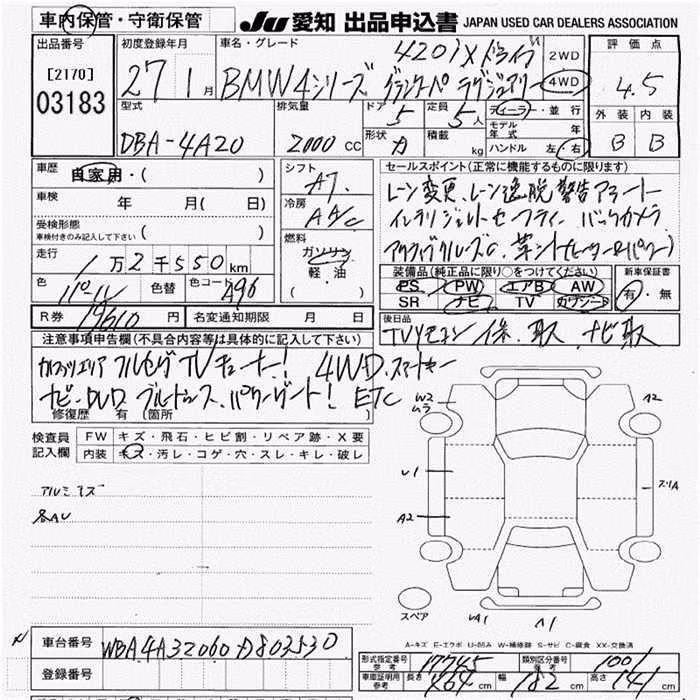 車内保管・守衛保管
JU 愛知 出品申込書 JAPAN USED CAR DEALERS ASSOCIATION
出品番号
[2170]
03183
初度登録年月
27 1月
車名・グレード
420i Xドライブ
BMW4シリーズ グランクーペ ラグジュアリー
2WD
4WD
評価点
4.5
外装 内装
B B
型式
DBA-4A20
排気量
2000 cc
ドア 5
定員 5人
形状
積載 kg
ディーラー・並行
モデル年式 年
ハンドル 左・右
車歴
自家用・( )
車検 年 月( 日)
受検形態
車検付きのみ記入して下さい ( )
走行
1万2千550km
色 パール 色替 色コード A96
R券 19610円 名変通知期限 月 日
シフト
AT
冷房
AAC
燃料
ガソリン
軽・油
セールスポイント(正常に機能するものに限ります)
レーン変更、レーン逸脱警告アラート
インテリジェントセーフティ バックカメラ
アクティブクルーズC. 革シート(ヒーター&パワー)
装備品(純正品に限り○をつけてください)
PS PW エアB AW
SR ナビ TV カワシート
新車保証書
有・無
後日品
TVリモコン 保、取、ナビ取
注意事項申告欄(不具合内容等は具体的に記入して下さい)
フルセグTVチューナー! 4WD.スマートキー
ナビ・DVD ブルートゥース、パワーゲート! ETC
修復歴 有 (箇所 )
検査員記入欄
FW キズ・飛石・ヒビ割・リペア跡・X要
内装 キズ・汚レ・コゲ・穴・スレ・キレ・破レ
アルミキズ
各AU
W2
ムラ
U1
A2
A2
スリA
スペア
UA1
A1
A-キズ E-エクボ U-凹み W-補修跡 S-サビ C-腐食 XX-交換済
車台番号 WBA4A32060D803530
登録番号
形式指定番号 参考 17745
類別区分番号 参考 1001
車庫証明用参考 長さ 464 cm 幅 182 cm 高さ 141 cm